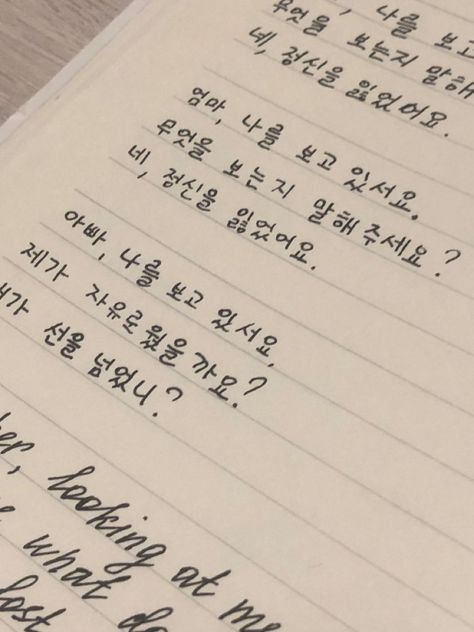 , 나를 보고
무엇을 보는지 말해
네, 정신을 잃었어요.
엄마, 나를 보고 있서요.
무엇을 보는지 말해주세요?
네, 정신을 잃었어요.
아빠, 나를 보고 있서요,
제가 자유로웠을 가요?
내가 선을 넘었니?
looking at me
what do
lost